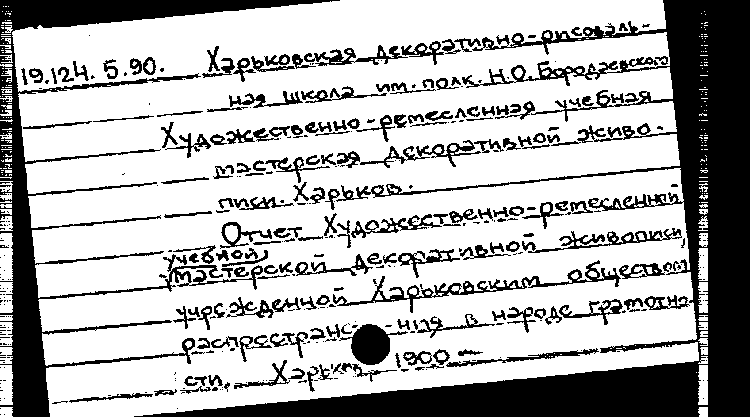 19.124.5.90. Харьковская декоративно-рисоваль-
ная школа им. полк. Н.О. Бородаевского
Художественно-ремесленная учебная
мастерская декоративной живо-
писи. Харьков.
Отчет Художественно-ремесленной
учебной
мастерской декоративной живописи,
учрежденной Харьковским обществом
распростране-ния в народе грамотно-
сти. Харьков, 1900 -